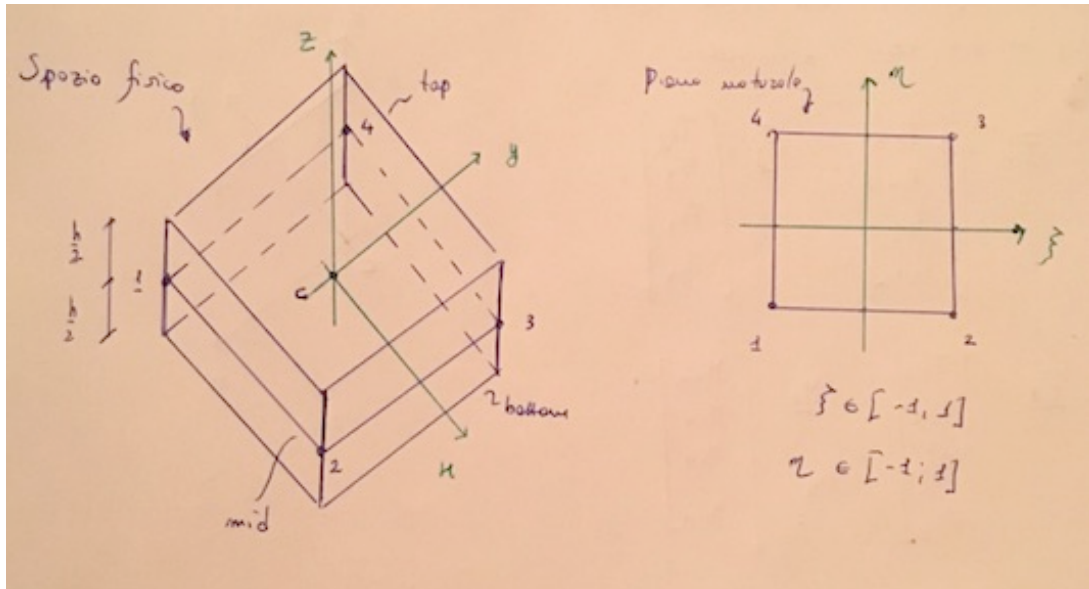 Spazio fisico
z
top
4
y
h/2
h/2
1
c
3
bottom
x
2
mid
Piano naturale
η
4
3
ξ
1
2
ξ ∈ [-1, 1]
η ∈ [-1; 1]